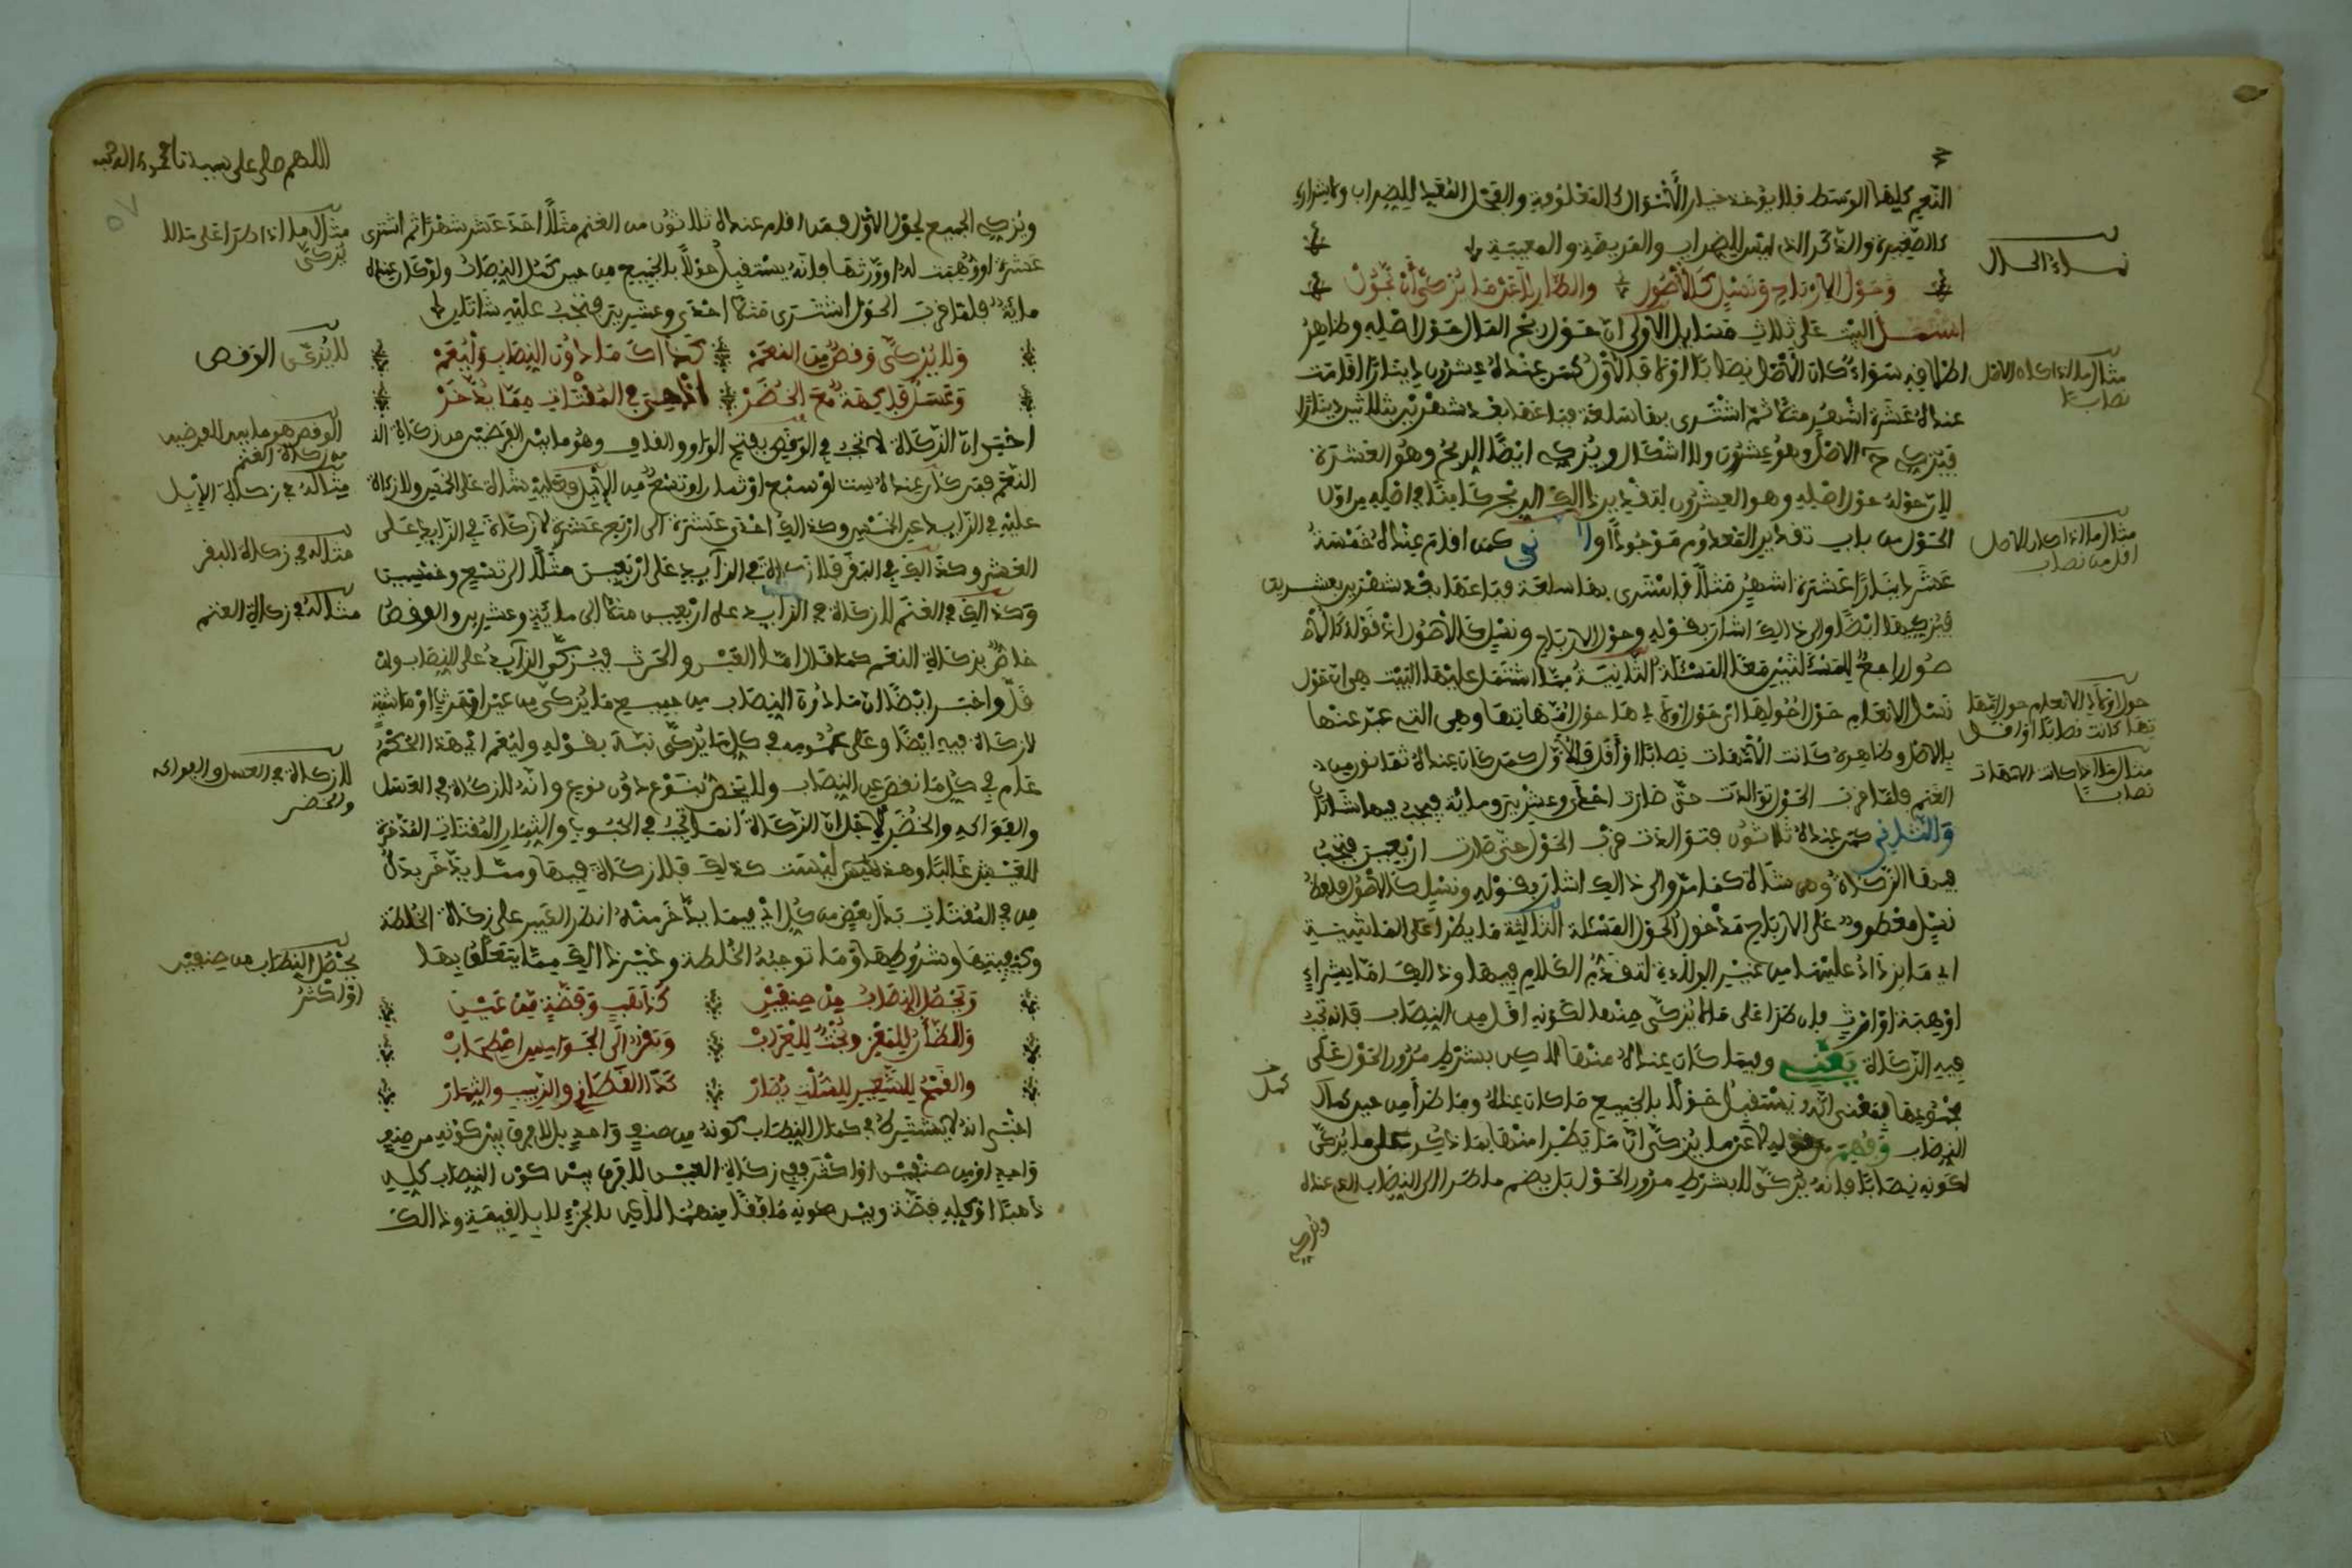 النعم كلها الوسط فلا يؤخذ خيار الأموال كالمعلوفة والفحل المعد للضراب ولا شراره
كالصغيرة والذكر الذي ليس للضراب والمريضة والمعيبة
وحول الارباح ونسل كالأصول والطار لا عن ما يزكى أن يحول
اشتمل البيت على ثلاث مسايل الاولى ان حول ربح المال حول اصله وظاهر
اطلاقه سواء كان الأصل نصابا او لا فالأول كمن عنده عشرون دينارا اقامت
عنده عشرة اشهر مثلا ثم اشترى بها سلعة فباعها بعد شهرين بثلاثين دينارا
فيزكي ح الاصل وهو عشرون ولا اشكال ويزكي ايضا الربح وهو العشرة
لان حوله حول اصله وهو العشرون لتقدير ذالك الربح كامنا في اصله من اول
الحول من باب تقدير المعدوم موجودا والثاني كمن اقام عنده خمسة
عشر دينارا عشرة اشهر مثلا فاشترى بها سلعة فباعها بعد شهرين بعشرين
فيزكيها ايضا والى ذالك اشار بقوله وحول الارباح ونسل كالأصول اذ قوله كالأ
صول راجع للمسئلتين معا المسئلة الثانية مما اشتمل عليها البيت هي ان حول
نسل الانعام حول اصولها اي حول اولادها حول امهاتها وهي التي عبر عنها
بالاصل وظاهره كانت الأمهات نصابا او أقل فالأول كمن كان عنده ثمانون من
الغنم فلما قرب الحول توالدت حتى صارت احدى وعشرين ومائة فيجب فيها شاتان
والثاني كمن عنده ثلاثون فتوالدت قرب الحول حتى صارت اربعين فيجب
فيها الزكاة وهي شاة كما مر والى ذالك اشار بقوله ونسل كالأصول فلفظ
نسل معطوف على الارباح مدخول لحول المسئلة الثالثة ما يطرأ على الماشية
اي ما يزاد عليها من غير الولادة لتقدم الكلام فيها وذالك اما بشراء
او هبة او ارث فان طرا على ما لا يزكى حينها لكونه اقل من النصاب فانه تجب
فيه الزكاة يعني وفيما كان عنده منها لاكن بشرط مرور الحول على
مجموعها بمعنى انه يستقبل حولا بالجميع ما كان عنده وما طرأ من حين كمال
النصاب وفهم من قوله لا عن ما يزكى ان ما يطرا منها بما ذكر على ما يزكى
لكونه نصابا فإنه يزكى لا بشرط مرور الحول بل يضم ما طرا الى النصاب الذي عنده
ويزكي
نماء الحلال
مثال ما اذا كان الاصل
نصابا
مثال ما اذا كان الاصل
اقل من نصاب
حول اولاد الانعام حول امها
تها كانت نصابا او اقل
مثال ما اذا كانت الامهات
نصابا
كمل
اللهم صل على سيدنا محمد واله وصحبه
ويزكي الجميع لحول الأول فمن اقام عنده ثلاثون من الغنم مثلا احد عشر شهرا ثم اشترى
عشرة او وهبت له او ورثها فانه يستقبل حولا بالجميع من حين كمل النصاب ولو كان عنده
مائة فلما قرب الحول اشترى مثلا احدى وعشرين فتجب عليه شاتان
ولا يزكى وقص من النعم كذاك ما دون النصاب وليعم
وعسل فاكهة مع الخضر اذ هي في المقتات مما يدخر
اخبر ان الزكاة لا تجب في الوقص بفتح الواو والقاف وهو ما بين الفرضين من زكاة ال
النعم فمن كان عنده ست او سبع او ثمان او تسع من الابل فعليه شاة على الخمس ولا زكاة
عليه في الزايد عن الخمس وكذالك احدى عشرة الى اربع عشرة لا زكاة في الزايد على
العشر وكذالك في البقر فلا زكاة في الزايد على اربعين مثلا الى تسع وخمسين
وكذالك في الغنم لا زكاة في الزايد على اربعين مثلا الى مائة وعشرين والوقص
خاص بزكاة النعم كما قال اما العين والحرث فيزكى الزايد على النصاب وان
قل واخبر ايضا ان ما دون النصاب من جميع ما يزكى من عين او حرث او ماشية
لا زكاة فيه ايضا وعلى عمومه في كل ما يزكى نبه بقوله وليعم اي هذا الحكم
عام في كل ما نقص عن النصاب ولا يختص بنوع دون نوع وانه لا زكاة في العسل
والفواكه والخضر لاجل ان الزكاة انما تجب في الحبوب والثمار المقتات المدخرة
للعيش غالبا وهذه ليست كذلك فلا زكاة فيها ومما يدخر بدل
من في المقتات بدل بعض من كل اي فيما يدخر منه انظر الكبير على زكاة الخلطة
وكيفيتها وشروطها وما توجبه الخلطة وغير ذالك مما يتعلق بها
ويحصل النصاب من صنفين كذهب وفضة من عين
والضأن للمعز وبخت للعراب وبقر الى الجواميس اصطحاب
والقمح للشعير للسلت يصار كذا القطاني والزبيب والثمار
اخبر انه لا يشترط في كمال النصاب كونه من صنف واحد بل لا فرق بين كونه من صنف
واحد او من صنفين او اكثر ففي زكاة العين لا فرق بين كون النصاب كله
ذهبا او كله فضة وبين كونه ملفقا منهما لاكن بالجزء لا بالقيمة وذالك
مثال ما اذا طرا على ما لا
يزكى
لا يزكى الوقص
الوقص هو ما بين الفرضين
من زكاة الغنم
مثاله في زكاة الابل
مثاله في زكاة البقر
مثاله في زكاة الغنم
لا زكاة في العسل والفواكه
والخضر
يحصل النصاب من صنفين
او اكثر